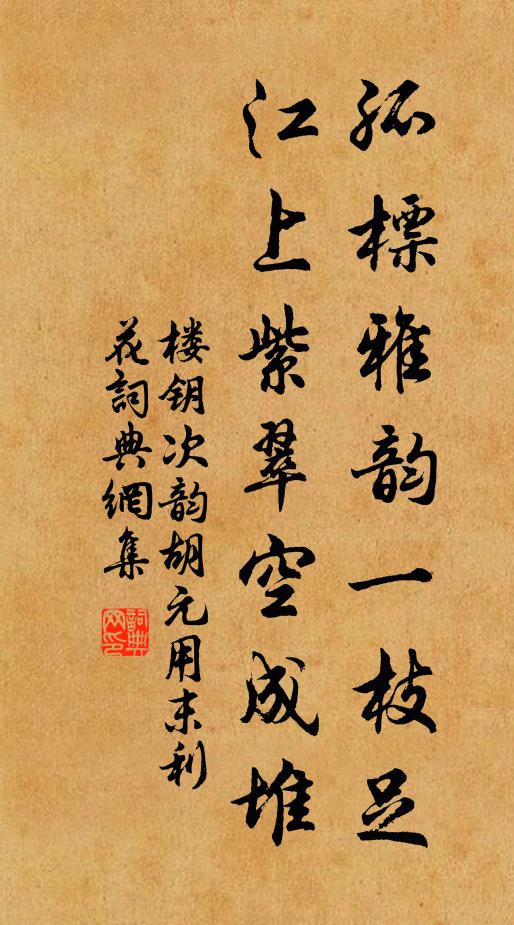 孤標雅韵一枝足
江上紫翠空成堆
楼钥次韵胡元用末利
花詞典網集
詞典网印